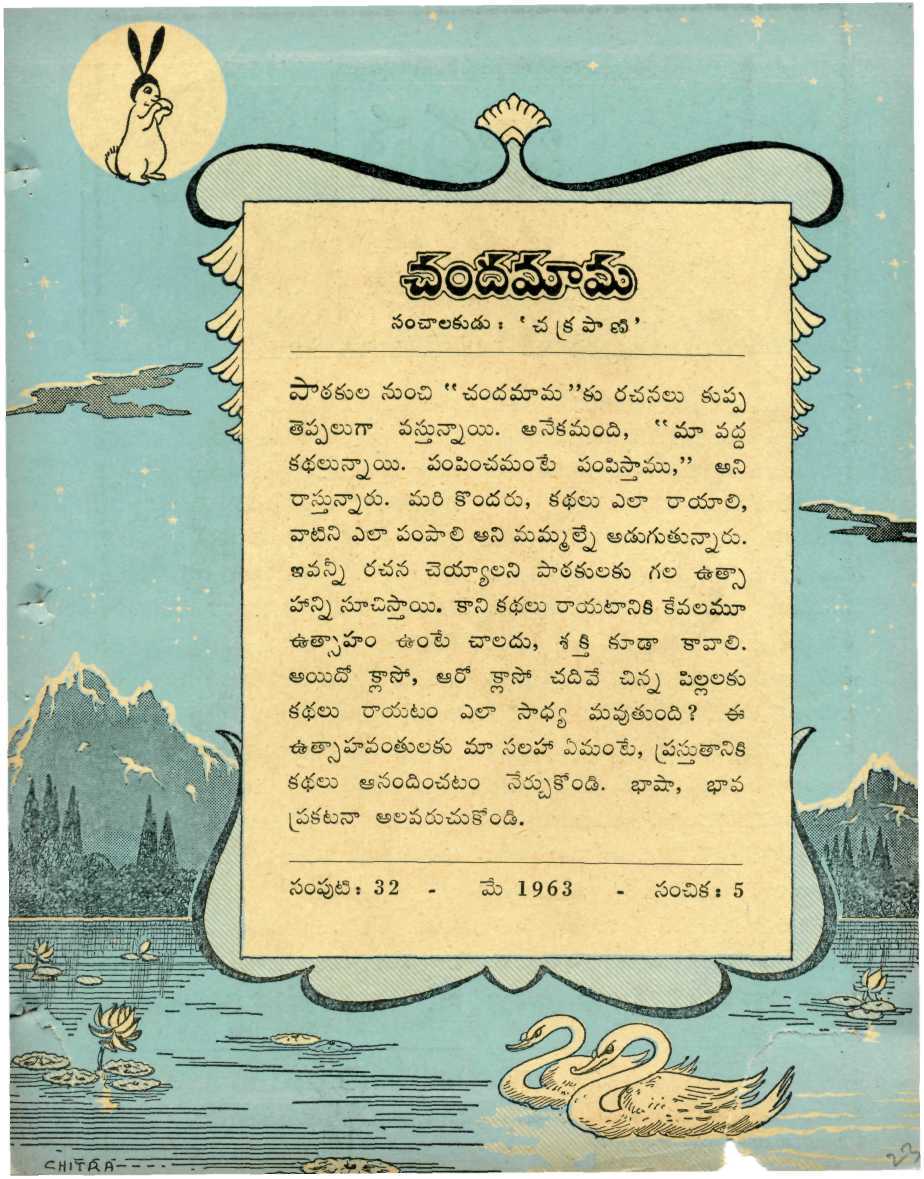 చందమామ
సంచాలకుడు : ‘చక్రపాణి’
పాఠకుల నుంచి “చందమామ”కు రచనలు కుప్ప
తెప్పలుగా వస్తున్నాయి. అనేకమంది, “మా వద్ద
కథలున్నాయి. పంపించమంటే పంపిస్తాము,” అని
రాస్తున్నారు. మరి కొందరు, కథలు ఎలా రాయాలి,
వాటిని ఎలా పంపాలి అని మమ్మల్నే అడుగుతున్నారు.
ఇవన్నీ రచన చెయ్యాలని పాఠకులకు గల ఉత్సా
హాన్ని సూచిస్తాయి. కాని కథలు రాయటానికి కేవలమూ
ఉత్సాహం ఉంటే చాలదు, శక్తి కూడా కావాలి.
అయిదో క్లాసో, ఆరో క్లాసో చదివే చిన్న పిల్లలకు
కథలు రాయటం ఎలా సాధ్య మవుతుంది? ఈ
ఉత్సాహవంతులకు మా సలహా ఏమంటే, ప్రస్తుతానికి
కథలు ఆనందించటం నేర్చుకోండి. భాషా, భావ
ప్రకటనా అలవరుచుకోండి.
సంపుటి : 32 - మే 1963 - సంచిక : 5
CHITRA
23